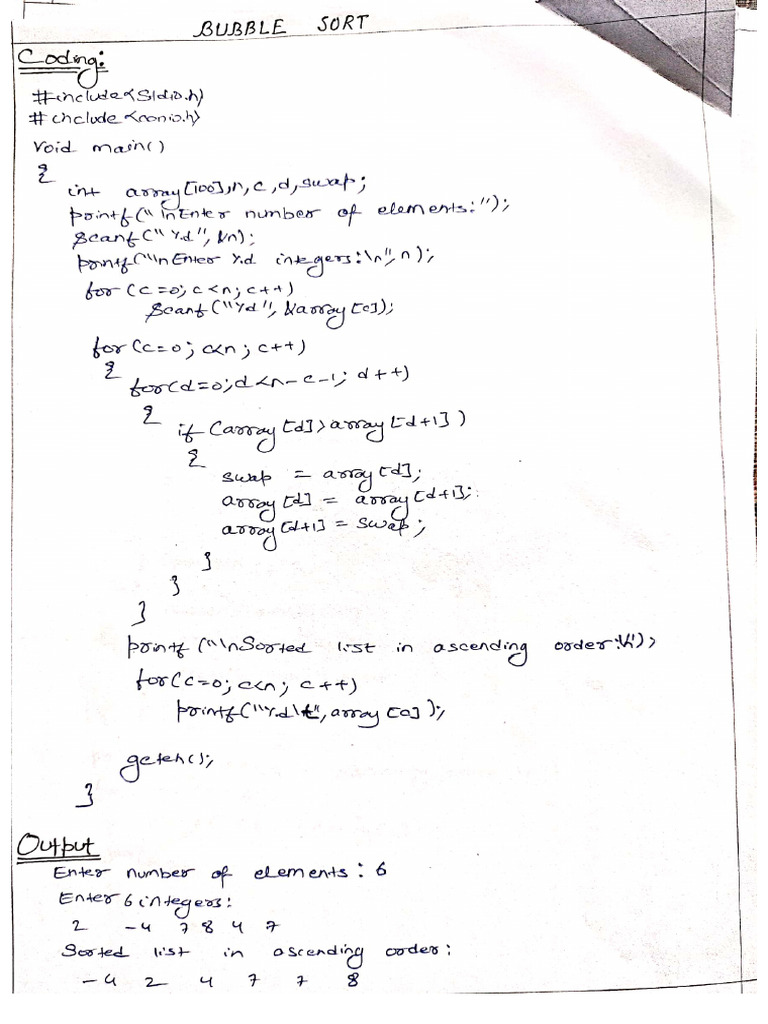 BUBBLE SORT
Coding:
#include<stdio.h>
#include<conio.h>
void main()
{
int array[100],n,c,d,swap;
printf("\nEnter number of elements:");
scanf("%d",&n);
printf("\nEnter %d integers:\n",n);
for(c=0;c<n;c++)
scanf("%d",&array[c]);
for(c=0;c<n;c++)
{
for(d=0;d<n-c-1;d++)
{
if(array[d]>array[d+1])
{
swap = array[d];
array[d] = array[d+1];
array[d+1] = swap;
}
}
}
printf("\nSorted list in ascending order:\n");
for(c=0;c<n;c++)
printf("%d\t",array[c]);
getch();
}
Output
Enter number of elements: 6
Enter 6 integers:
2 -4 7 8 4 7
Sorted list in ascending order:
-4 2 4 7 7 8